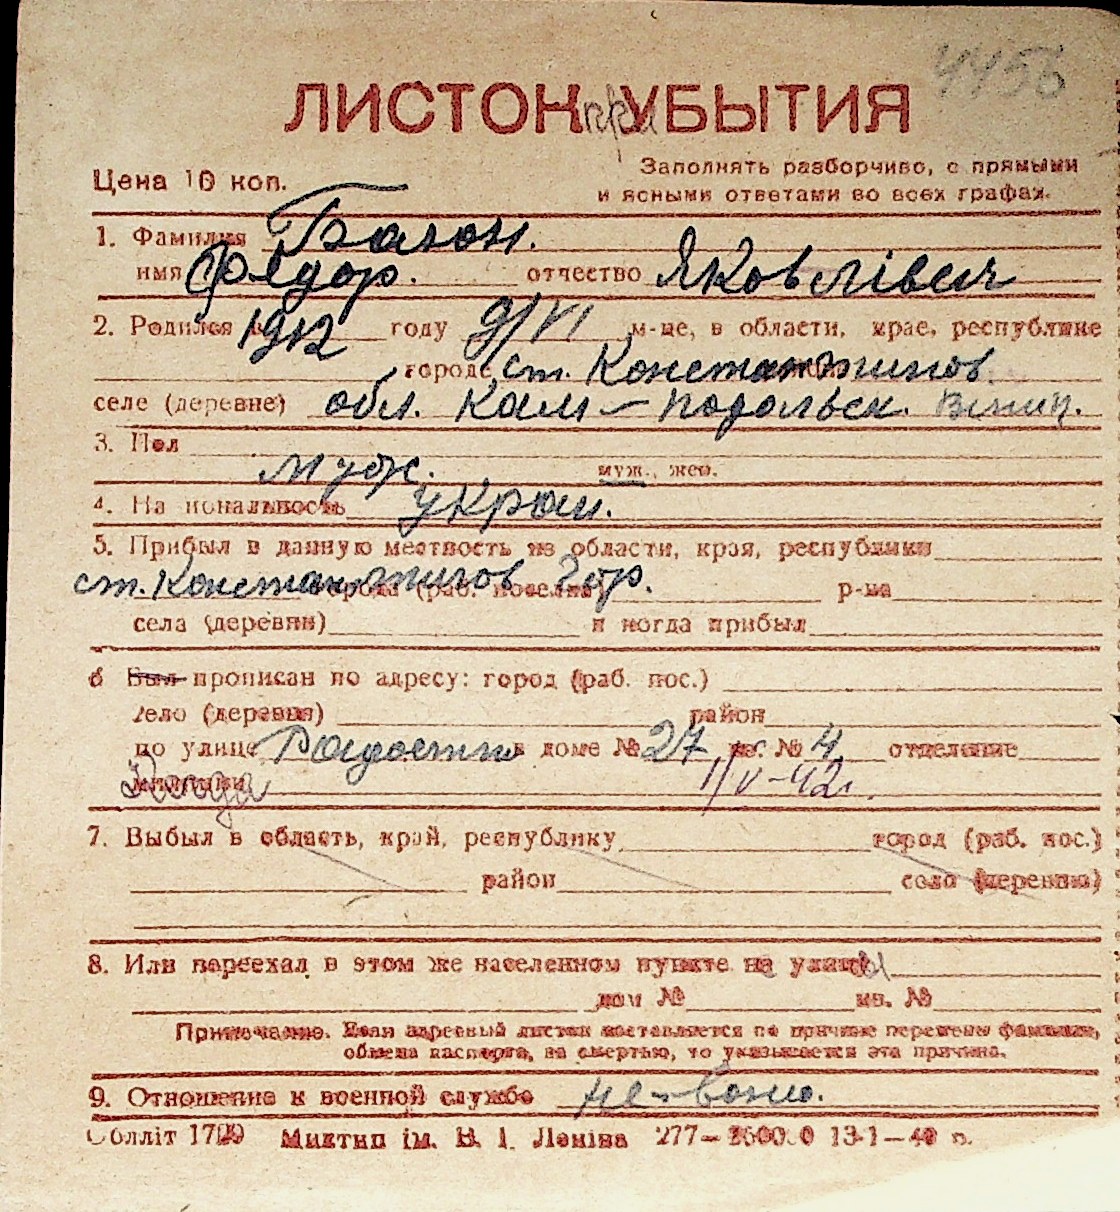 4456
ЛИСТОК при УБЫТИЯ
Цена 10 коп.
Заполнять разборчиво, с прямыми
и ясными ответами во всех графах.
1. Фамилия Базон.
имя Федор. отчество Яковлівич
2. Родился в 1912 году 9/VI м-це, в области, крае, республике
городе ст. Константинов.
селе (деревне) обл. Кам-подольск. Вінни.
3. Пол муж. муж., жен.
4. Национальность украи.
5. Прибыл в данную местность из области, края, республики
ст. Константинов гор. города (раб. поселка) р-на
села (деревни) и когда прибыл
6 Был прописан по адресу: город (раб. пос.)
село (деревня) район
по улице Радости в доме № 27 кв. № 4 отделение
милиции 1/V-42.
7. Выбыл в область, край, республику город (раб. пос.)
район село (деревню)
8. Или переехал в этом же населенном пункте на улицу
дом № кв. №
Примечание. Если адресный листок составляется по причине перемены фамилии,
обмена паспорта, за смертью, то указывается эта причина.
9. Отношение к военной службе не-воен.
Облліт 1799 Миктип ім. В. І. Леніна 277— 13-1—40 р.